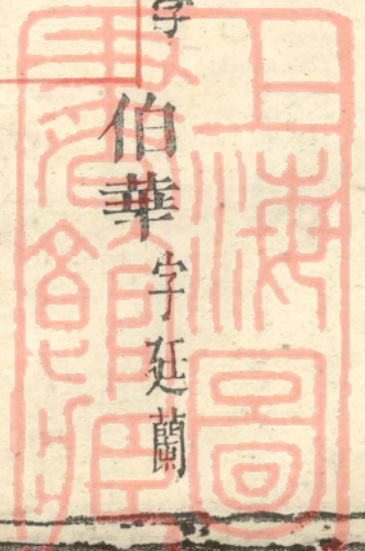 字
伯華字延蘭
上海圖書館藏